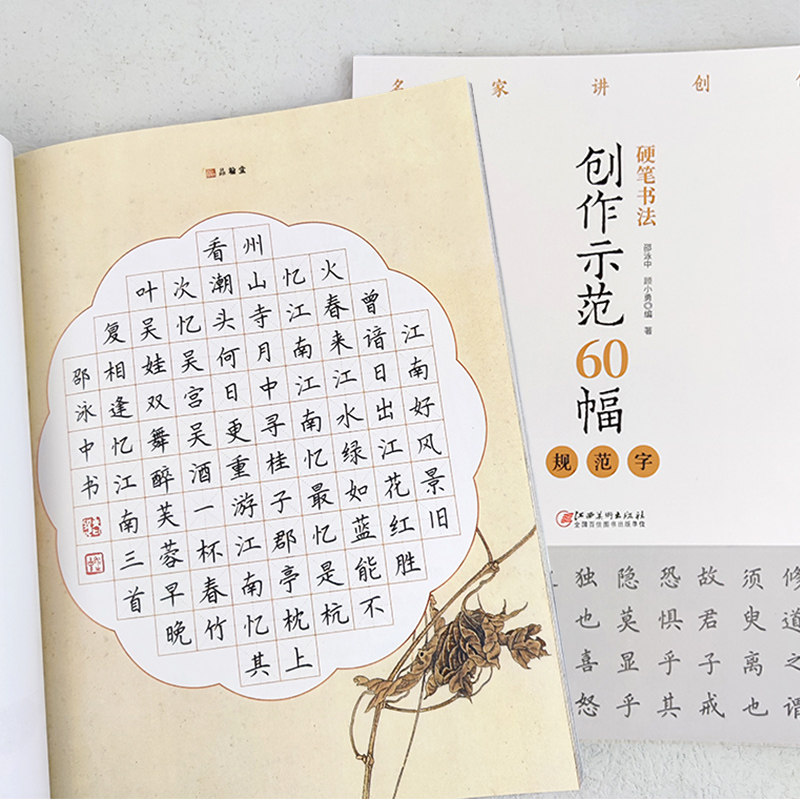 品翰堂
江南好风景旧
曾谙日出江花红胜
火春来江水绿如蓝能不
忆江南江南忆最忆是杭
州山寺月中寻桂子郡亭枕上
看潮头何日更重游江南忆其
次忆吴宫吴酒一杯春竹
叶吴娃双舞醉芙蓉早晚
复相逢忆江南三首
邵泳中书
名家讲创
硬笔书法
创作示范60幅
邵泳中 顾小勇◎编著
规范字
江西美术出版社
全国百佳图书出版单位
修道之谓
须臾离也
故君子戒
恐惧乎其
隐莫显乎
独也喜怒